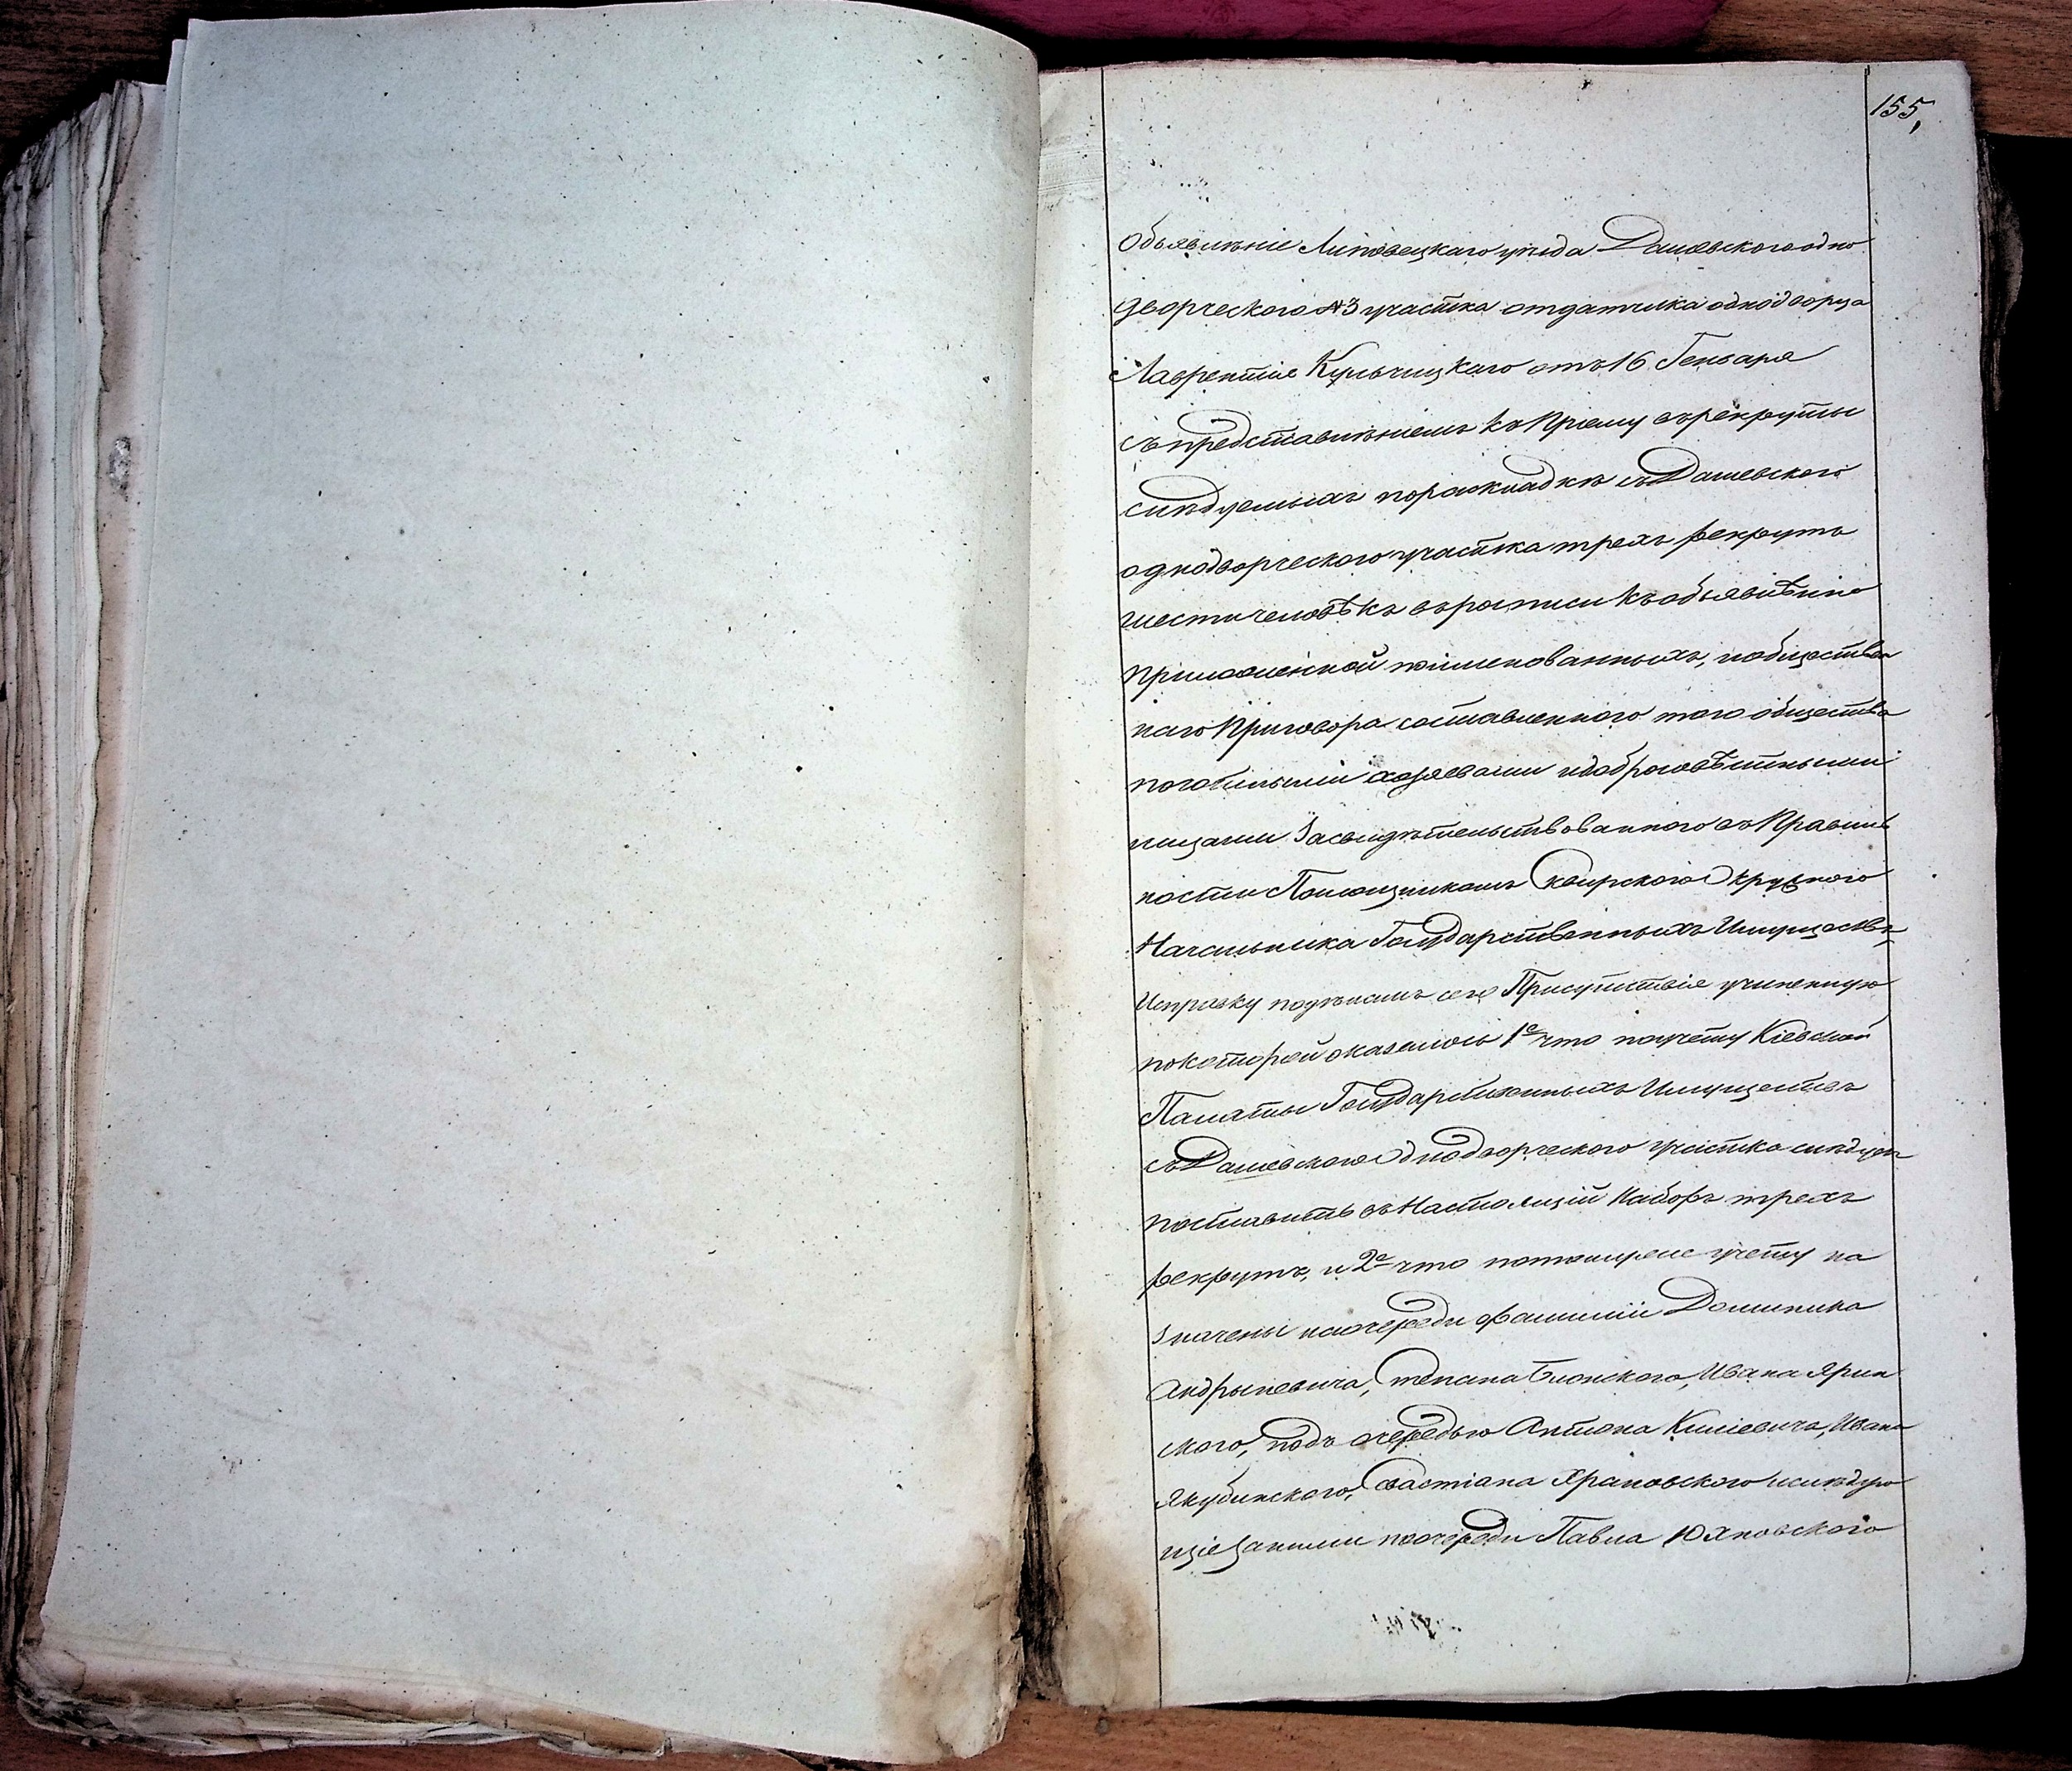 155,
Объявлѣніе Липовецкаго уѣзда Дашевскаго одно
дворческого №3 участка отдатчика однодворца
Лаврентія Кульчицкаго отъ 16 Генваря
съ представлѣніемъ къ Пріему въ рекруты
слѣдуемыхъ пораскладкѣ съ Дашевского
однодворческого участка трехъ рекрутъ
шести человѣкъ въ росписи къ объявлѣнію
приложенной поименованныхъ, и обществен
наго Приговора составленного того общества
хозяевами и добросовѣстными
лицами Засвидѣтельствованного въ Правиль
ности Помощникомъ Сквирского Окружного
Начальника Государственныхъ Имуществъ
Исправку подѣламъ сего Присутствія учиненную
по которой оказалось 1е что по учету Кіевской
Палаты Государственныхъ Имуществъ
съ Дашевского Однодворческого участка слѣдуетъ
поставить въ Настоящій Наборъ трехъ
рекрутъ, и 2е что потомуже учету на
значены на очереди фамиліи Доминика
Андрыпевича, Степана Блонского, Ивана Ярин
ского, подъ очередью Антона Килиевича, Ивана
Якубинского, Севастіана Храновского и слѣдую
щіе Заними по очереди Павла Юхновского